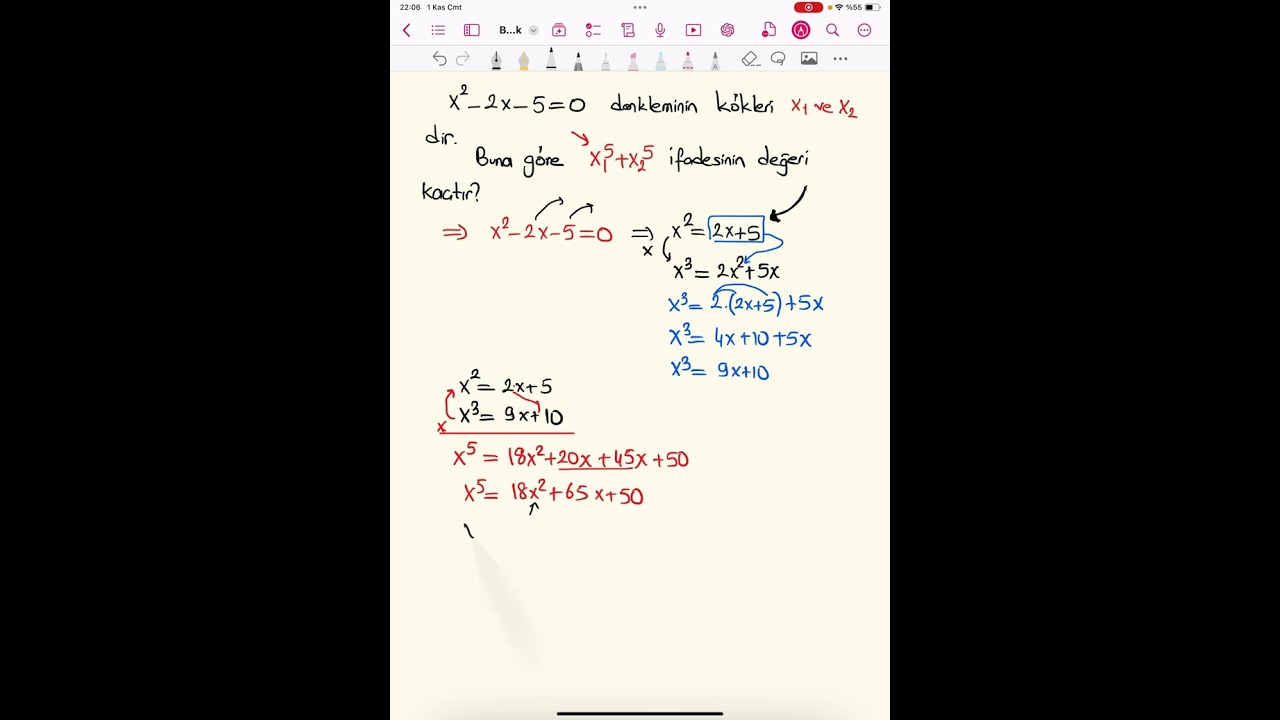 22:06 1 Kas Cmt
%55
B...k
x² - 2x - 5 = 0 denkleminin kökleri x₁ ve x₂
dir.
Buna göre x₁⁵ + x₂⁵ ifadesinin değeri
kaçtır?
⇒ x² - 2x - 5 = 0 ⇒ x² = 2x+5
x
x³ = 2x² + 5x
x³ = 2.(2x+5) + 5x
x³ = 4x + 10 + 5x
x³ = 9x+10
x² = 2x+5
x³ = 9x+10
x
x⁵ = 18x² + 20x + 45x + 50
x⁵ = 18x² + 65x + 50